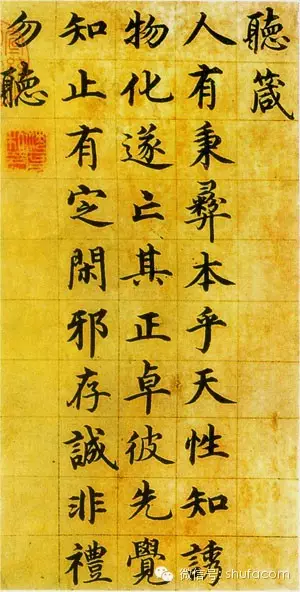 聽箴
人有秉彝本乎天性知誘
物化遂亡其正卓彼先覺
知止有定閑邪存誠非禮
勿聽
微信号: shufacom